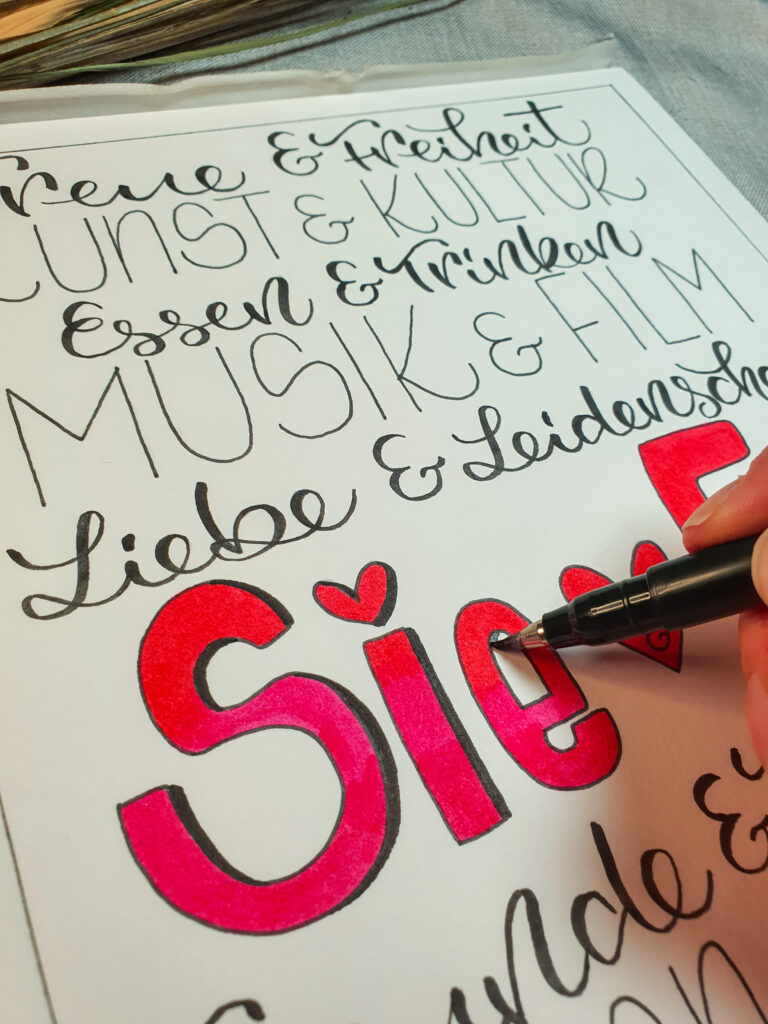 Treue & Freiheit
KUNST & KULTUR
Essen & Trinken
MUSIK & FILM
Liebe & Leidenscha
Sie
unde &